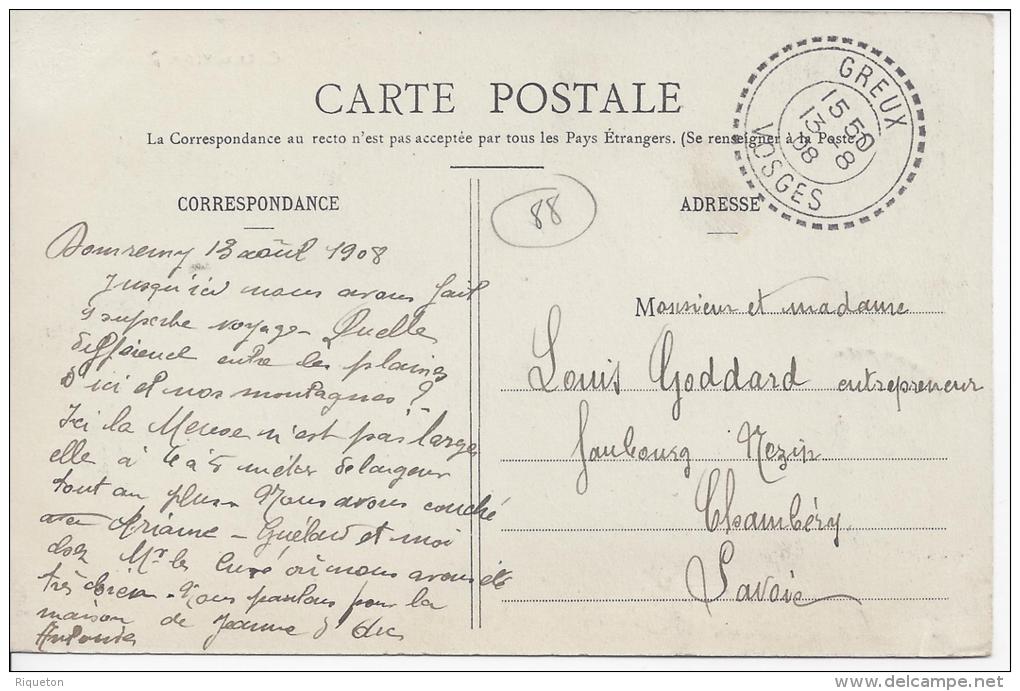 CARTE POSTALE
La Correspondance au recto n'est pas acceptée par tous les Pays Étrangers. (Se renseigner à la Poste)
GREUX
15 50
13 - 8
08
VOSGES
CORRESPONDANCE
88
ADRESSE
Domremy 13 août 1908
Jusqu'ici nous avons fait
superbe voyage - Quelle
différence entre les plaines
d'ici et nos montagnes ?
Ici la Meuse n'est pas large
elle a 4 à 5 mètres de largeur
tout au plus. Nous avons couché
Guélard et moi
chez Mr le Curé où nous avons été
très bien - Nous partons pour la
maison de Jeanne d'Arc
Antoine
Monsieur et madame
Louis Goddard entrepreneur
faubourg Nezin
Chambéry
Savoie
Riqueton
delcampe.net